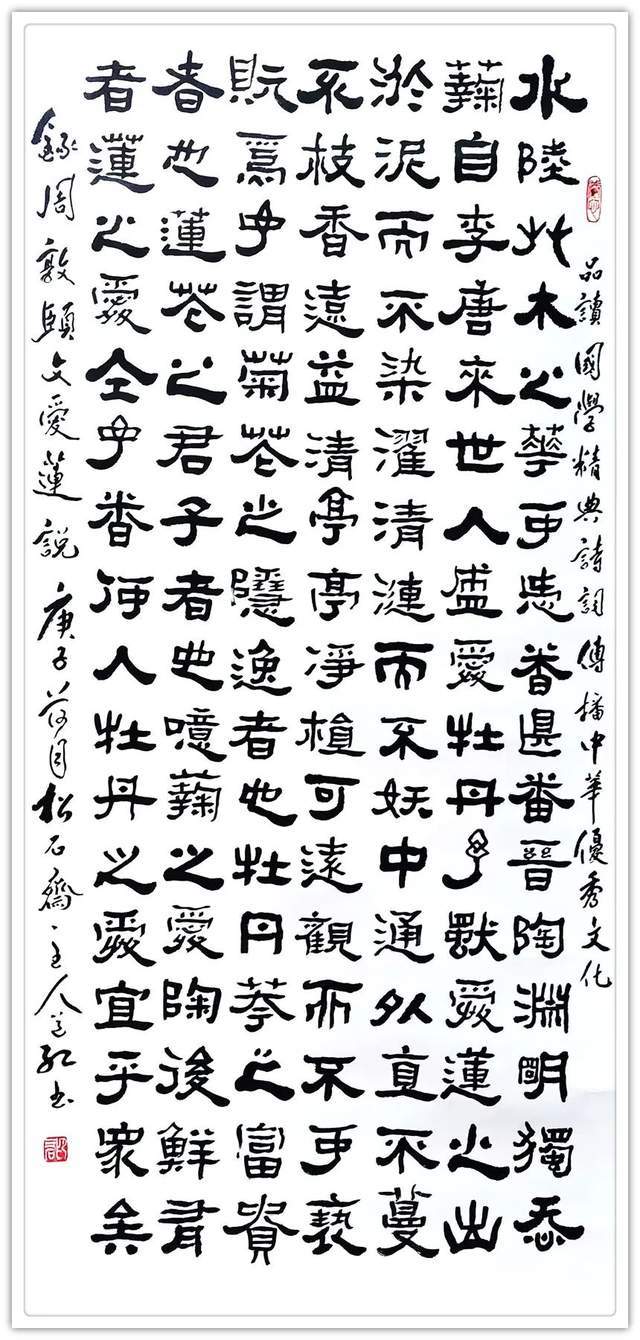 品讀國學精典詩詞傳播中華優秀文化
水陸艸木之華可㤅者甚番晉陶渊明獨㤅
蘜自李唐來世人盛愛牡丹予獸愛蓮之出
淤泥而不染濯清漣而不妖中通外直不蔓
不枝香遠益清亭亭凈植可遠觀而不可褻
貦焉予謂菊花之隱逸者也牡丹華之富貴
者也蓮花之君子者也噫蘜之愛陶後鮮有
者蓮之愛仝予者何人牡丹之愛宜乎眾矣
錄周敦頤文愛蓮說 庚子荷月松石齋主人書